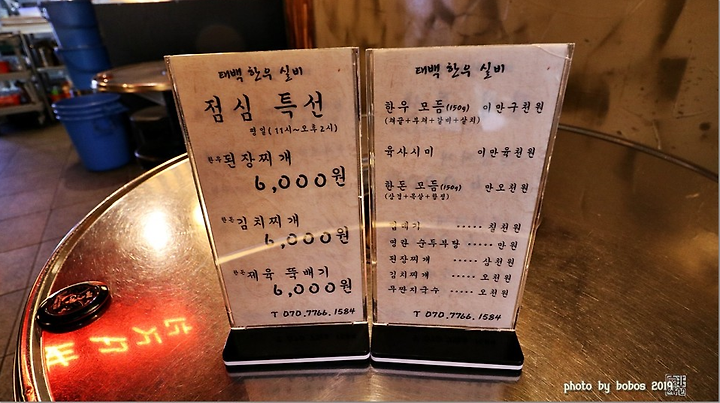 태백 한우 실비
점심 특선
평일(11시~오후2시)
한우된장찌개
6,000원
한돈김치찌개
6,000원
한돈제육 뚝배기
6,000원
T 070.7766.1584
태백 한우 실비
한우 모듬(150g) 이만구천원
육사시미 이만육천원
한돈 모듬(150g) 만오천원
(삼겹+목살+항정)
칠천원
명란 순두부탕 ····· 만원
된장찌개 ····· 삼천원
김치찌개 ····· 오천원
오천원
T 070.7766.1584
photo by bobos 2019